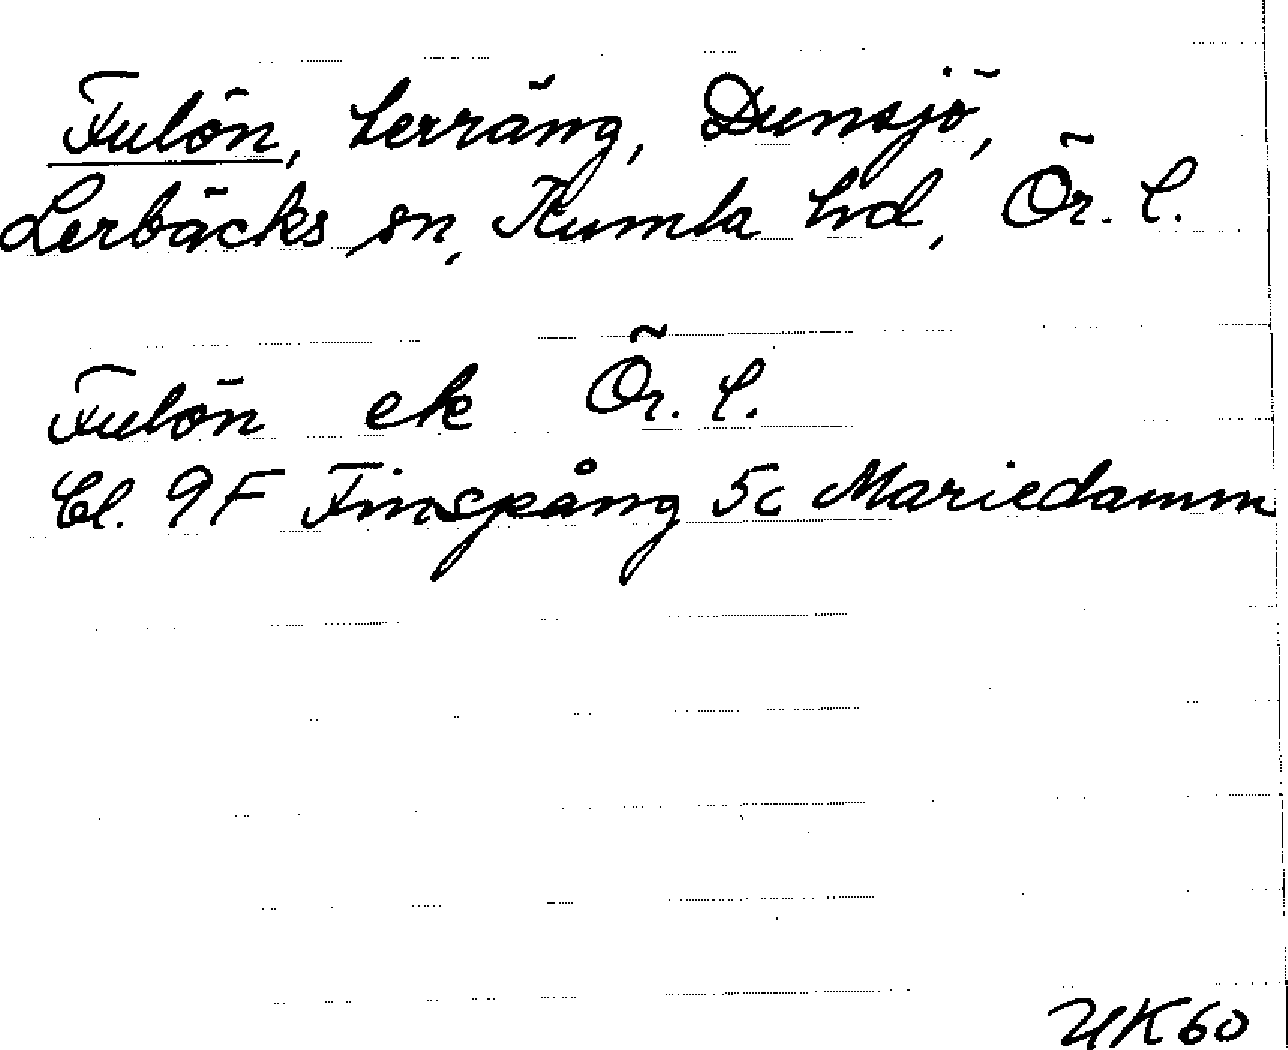 Fulön, terräng, Dunsjö,
Lerbäcks sn, Kumla hd, Ör. l.
Fulön ek Ör. l.
Bl. 9F Finspång 5c Mariedamm
UK60